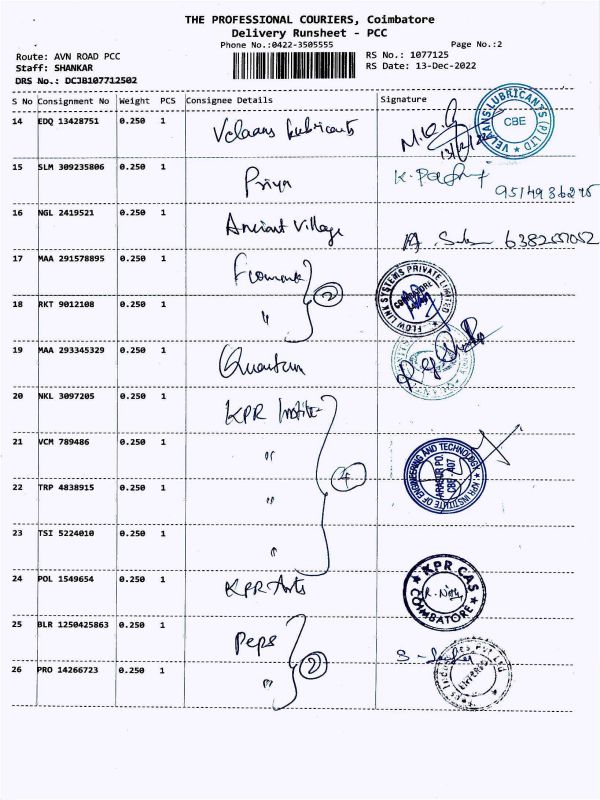 THE PROFESSIONAL COURIERS, Coimbatore
Delivery Runsheet - PCC
Phone No.:0422-3505555
Page No.:2
Route: AVN ROAD PCC
RS No.: 1077125
Staff: SHANKAR
RS Date: 13-Dec-2022
DRS No.: DCJB107712502
S No Consignment No Weight PCS Consignee Details Signature
14 EDQ 13428751 0.250 1 Velaans Lubricants
VELAANS LUBRICANTS (P) LTD
CBE
15 SLM 309235806 0.250 1 Priya
16 NGL 2419521 0.250 1 Ancient Village
17 MAA 291578895 0.250 1
FLOW LINK SYSTEMS PRIVATE LIMITED
COIMBATORE
2
18 RKT 9012108 0.250 1 "
19 MAA 293345329 0.250 1 Quantum
20 NKL 3097205 0.250 1 KPR
21 VCM 789486 0.250 1 "
KPR INSTITUTE OF ENGINEERING AND TECHNOLOGY
ARASUR PO.
CBE 407
4
22 TRP 4838915 0.250 1 "
23 TSI 5224010 0.250 1 "
24 POL 1549654 0.250 1 KPR Arts
KPR CAS
COIMBATORE
25 BLR 1250425863 0.250 1 Peps
2
26 PRO 14266723 0.250 1 "